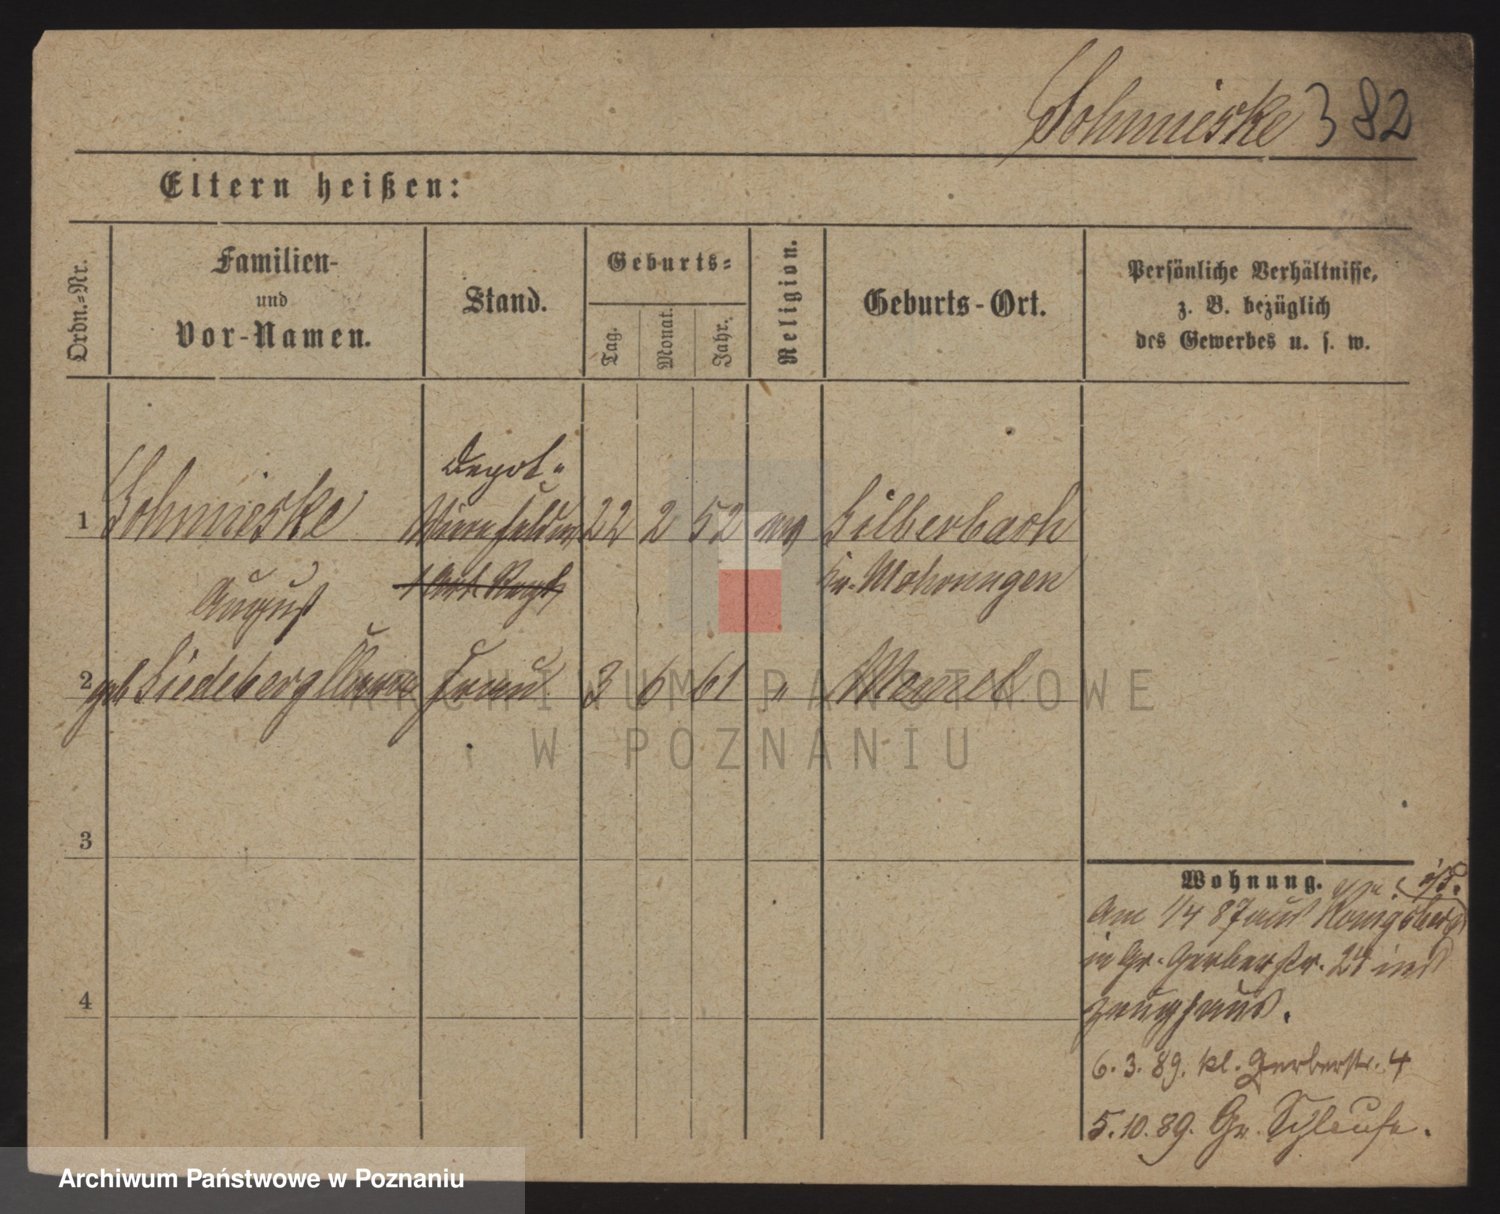 Schmieske 382
Eltern heißen:
Ordn.=Nr.
Familien-
und
Vor-Namen.
Stand.
Geburts=
Tag.
Monat.
Jahr.
Religion.
Geburts-Ort.
Persönliche Verhältnisse,
z. B. bezüglich
des Gewerbes u. s. w.
Depot-
1 Schmieske 22 2 52 Silberbach
August Kr. Mohrungen
2 geb Liedeberg Frau 3 6 61 " Memel
3
4
Wohnung.
Am 1/4 87 aus Königsberg
in Gr. Gerberstr. 27 ins
Zeughaus.
6.3.89. kl. Gerberstr. 4
5.10.89. Gr. Schleuse.
ARCHIWUM PAŃSTWOWE
W POZNANIU
Archiwum Państwowe w Poznaniu